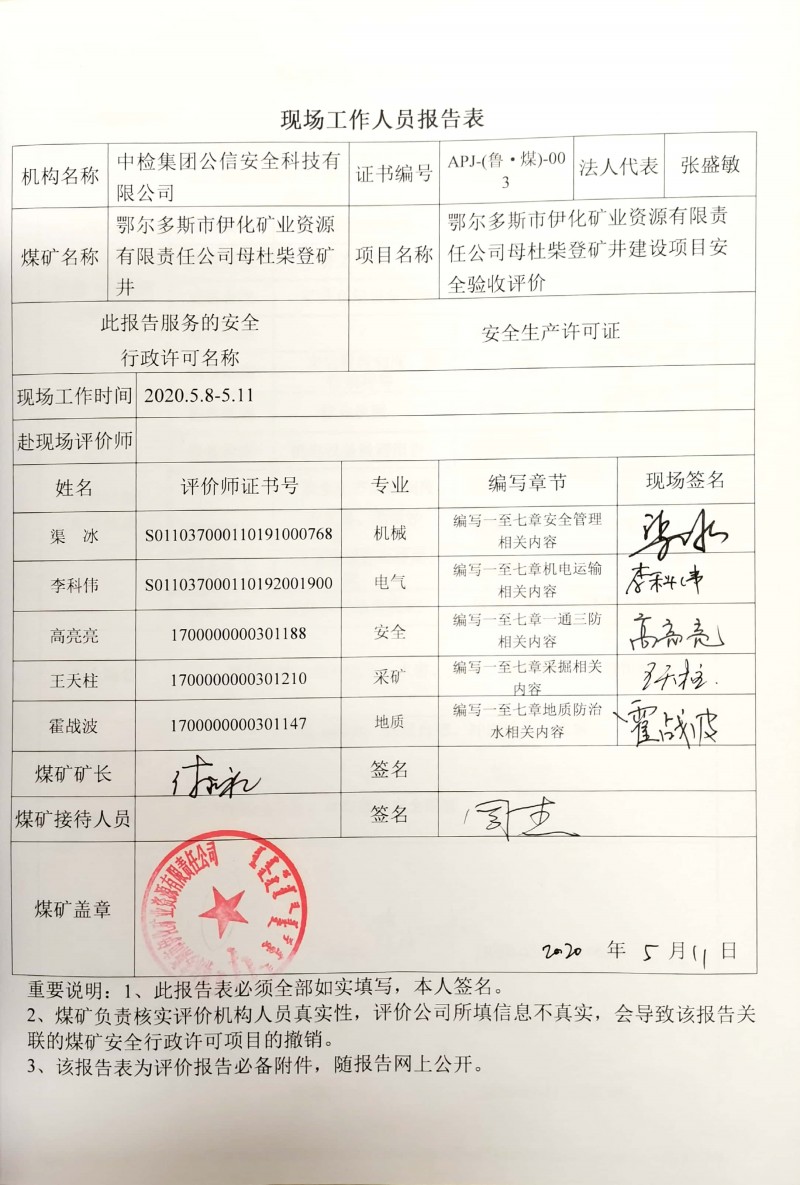 现场工作人员报告表
机构名称
中检集团公信安全科技有
限公司
证书编号
APJ-(鲁·煤)-00
3
法人代表
张盛敏
煤矿名称
鄂尔多斯市伊化矿业资源
有限责任公司母杜柴登矿
井
项目名称
鄂尔多斯市伊化矿业资源有限责
任公司母杜柴登矿井建设项目安
全验收评价
此报告服务的安全
行政许可名称
安全生产许可证
现场工作时间
2020.5.8-5.11
赴现场评价师
姓名
评价师证书号
专业
编写章节
现场签名
渠 冰
S011037000110191000768
机械
编写一至七章安全管理
相关内容
渠冰
李科伟
S011037000110192001900
电气
编写一至七章机电运输
相关内容
李科伟
高亮亮
1700000000301188
安全
编写一至七章一通三防
相关内容
高亮亮
王天柱
1700000000301210
采矿
编写一至七章采掘相关
内容
王天柱.
霍战波
1700000000301147
地质
编写一至七章地质防治
水相关内容
霍战波
煤矿矿长
签名
煤矿接待人员
签名
煤矿盖章
矿业资源有限责任公司
2020 年 5 月 11 日
重要说明：1、此报告表必须全部如实填写，本人签名。
2、煤矿负责核实评价机构人员真实性，评价公司所填信息不真实，会导致该报告关
联的煤矿安全行政许可项目的撤销。
3、该报告表为评价报告必备附件，随报告网上公开。